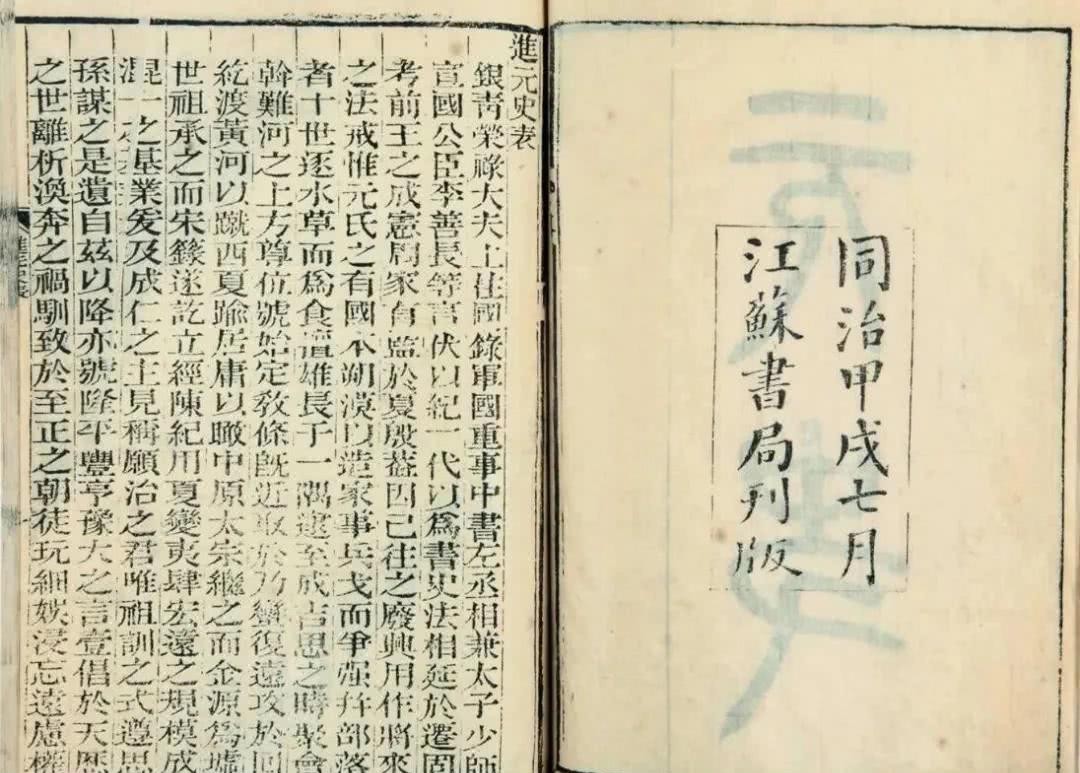 同治甲戌七月
江蘇書局刊版
進元史表
銀青榮祿大夫上柱國錄軍國重事中書左丞相兼太子少師
宣國公臣李善長等言伏以紀一代以爲書史法相延於遷固
考前王之成憲周家有監於夏殷蓋因已往之廢興用作將來
之法戒惟元氏之有國本朔漠以造家事兵戈而爭强幷部落
者十世逐水草而爲食擅雄長于一隅逮至成吉思之時聚會
斡難河之上方尊位號始定敎條旣近取於乃蠻復遠攻於回
紇渡黃河以蹴西夏踰居庸以瞰中原太宗繼之而金源爲墟
世祖承之而宋籙遂訖立經陳紀用夏變夷肆宏遠之規模成
混一之基業爰及成仁之主見稱願治之君唯祖訓之式遵思
孫謀之是遺自茲以降亦號隆平豐亨豫大之言壹倡於天歷
之世離析渙奔之禍馴致於至正之朝徒玩細娛浸忘遠慮權